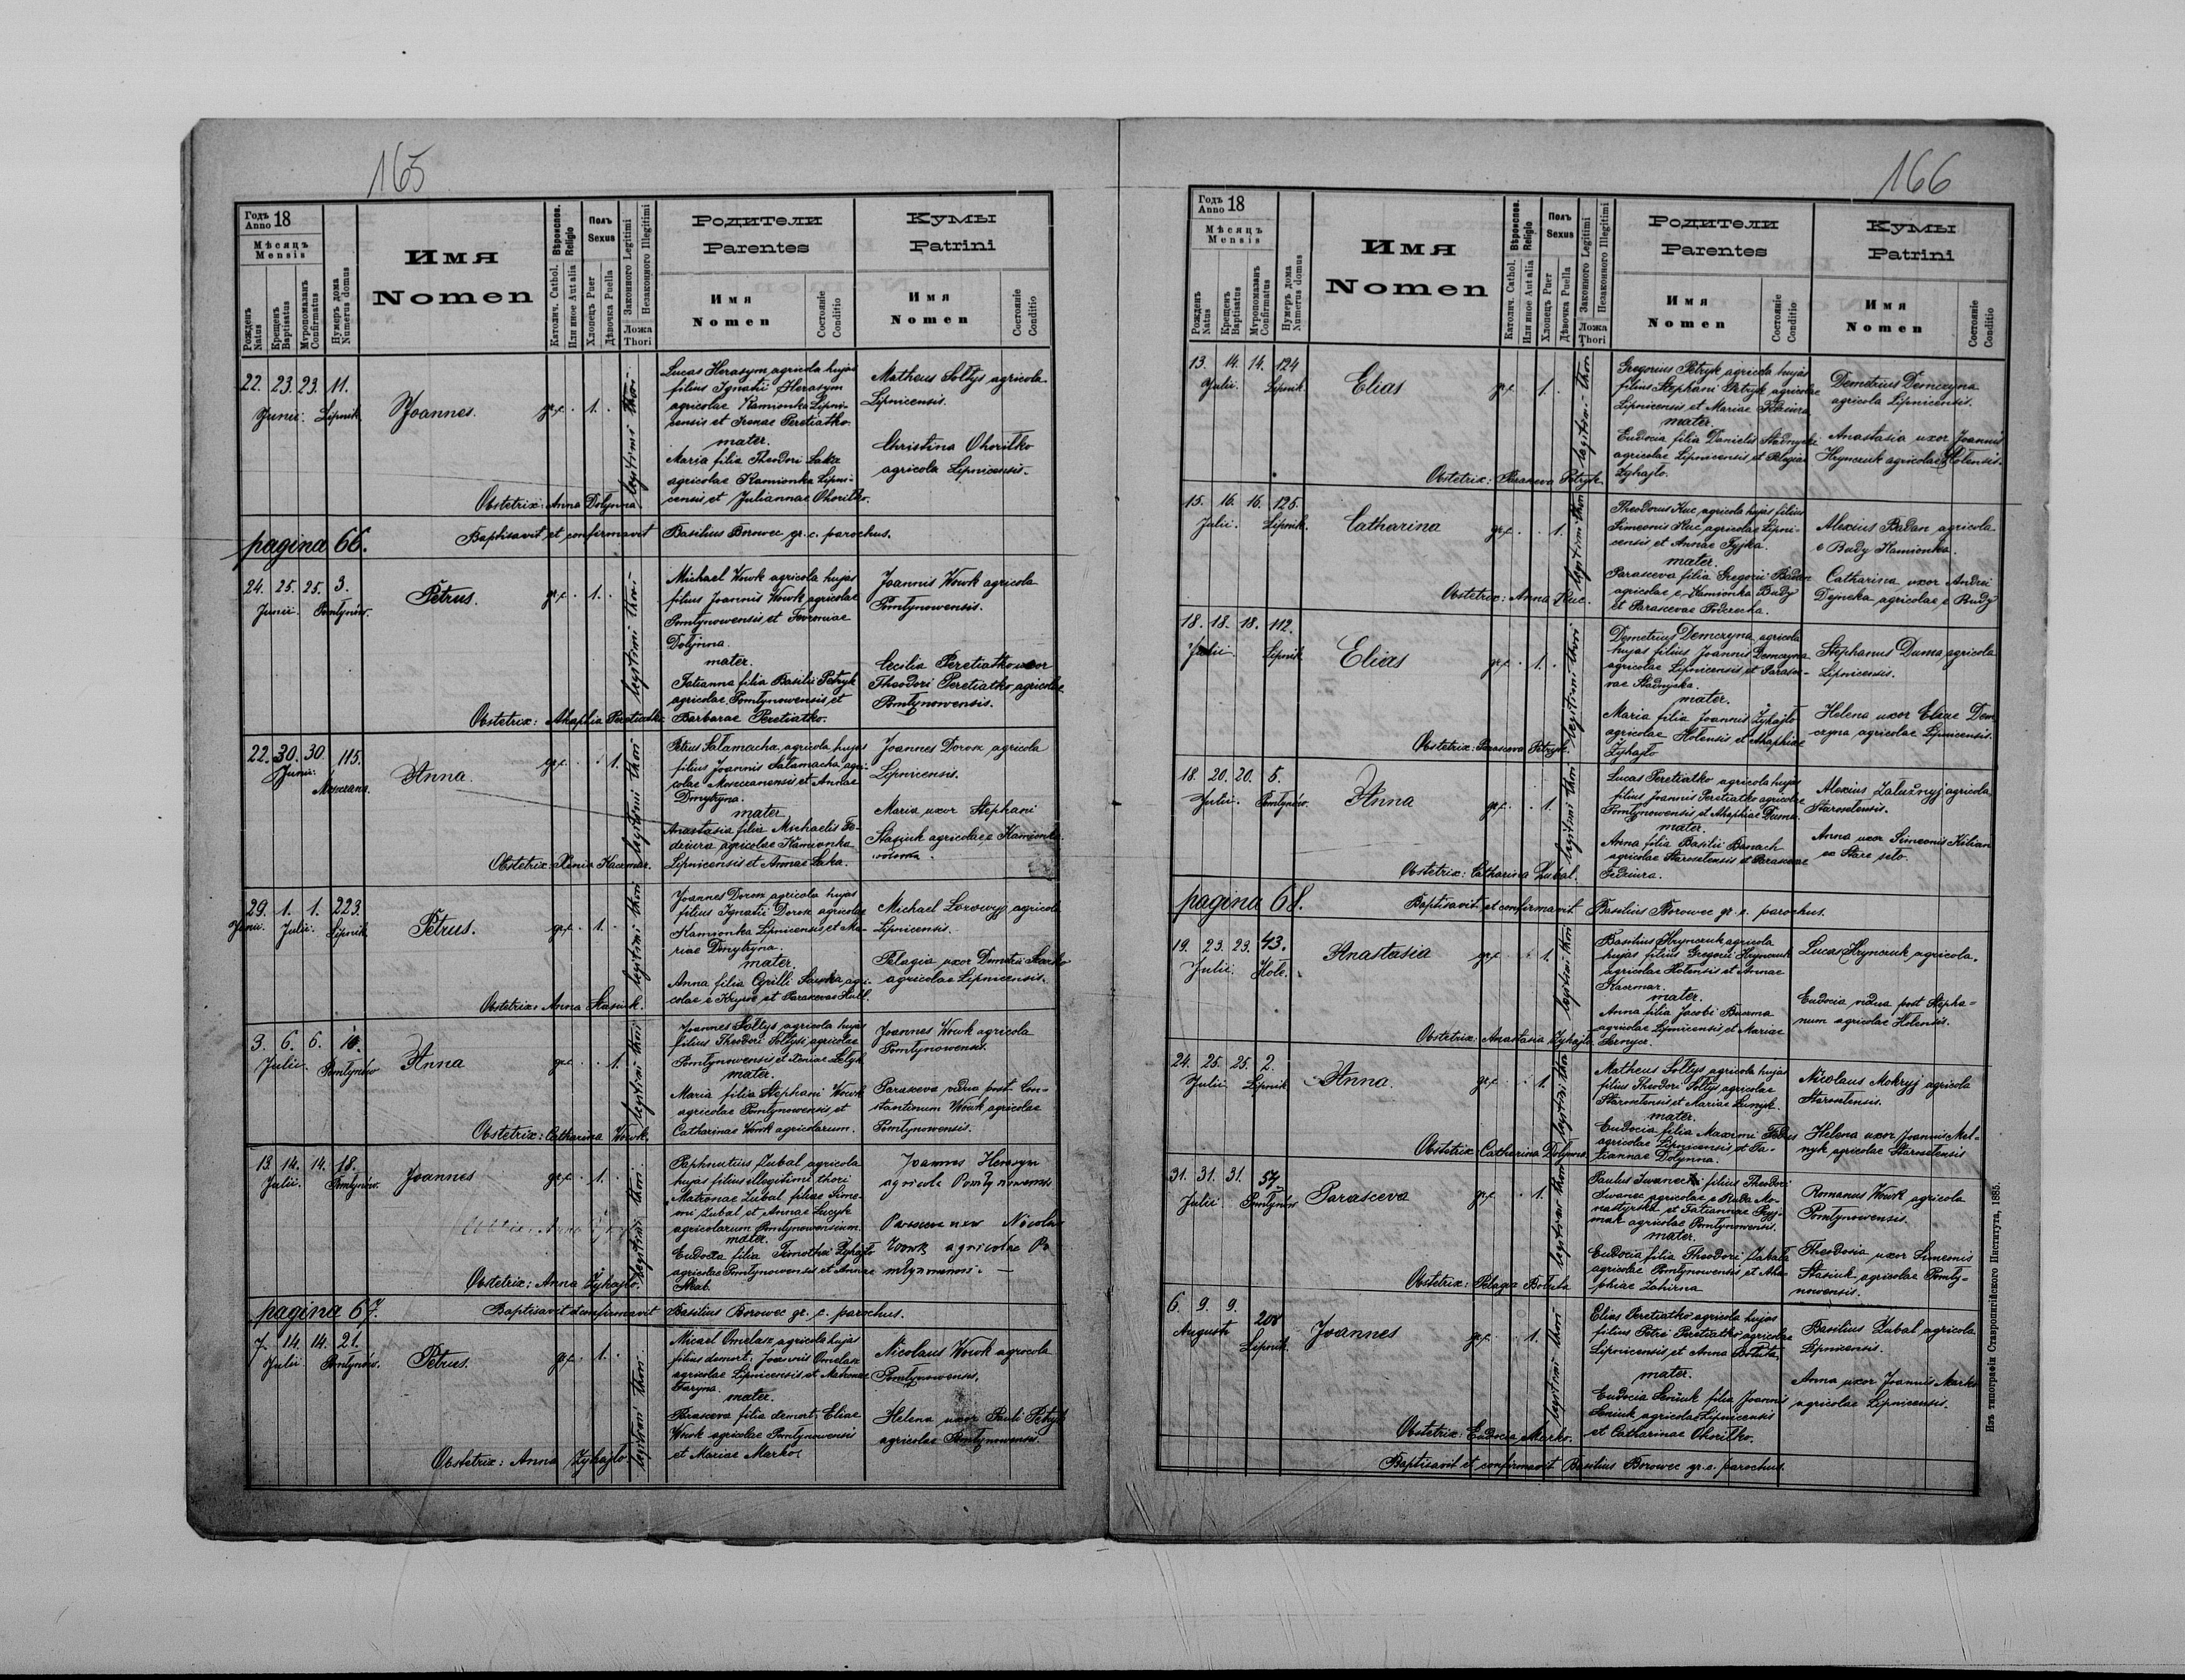 165
Годъ 18
Anno
Мѣсяцъ
Mensis
Рожденъ
Natus
Крещенъ
Baptisatus
Мѵропомазанъ
Confirmatus
Нумеръ дома
Numerus domus
Имя
Nomen
Вѣроиспов.
Religio
Католич. Cathol.
Или иное Aut alia
Полъ
Sexus
Хлопецъ Puer
Дѣвочка Puella
Законного Legitimi
Незаконного Illegitimi
Ложа
Thori
Родители
Parentes
Имя
Nomen
Состояніе
Conditio
Кумы
Patrini
Имя
Nomen
Состояніе
Conditio
22. 23. 23. 11.
Junii. Lipnik
Joannes.
1.
legitimi thori
Lucas Herasym agricola hujas
filius Ignatii Herasym
agricolae Kamionka Lipni-
censis et Irenae Peretiatko.
mater.
Maria filia Theodori Laka
agricolae Kamionka Lipni-
censis et Juliannae Ohorilko.
Matheus Soltys agricola
Lipnicensis.
Christina Ohorilko
agricola Lipnicensis.
Obstetrix: Anna Dolynna
pagina 66. Baptisavit et confirmavit Basilius Borowec gr. c. parochus.
24. 25. 25. 3.
Junii. Pomłynów.
Petrus.
1.
legitimi thori
Michael Wowk agricola hujas
filius Joannis Wowk agricolae
Pomłynowensis et Fevroniae
Dolynna.
mater.
Tatianna filia Basilii Petryk
agricolae Pomłynowensis et
Barbarae Peretiatko.
Joannis Wowk agricola
Pomłynowensis.
Cecilia Peretiatko uxor
Theodori Peretiatko agricolae
Pomłynowensis.
Obstetrix: Ahaphia Peretiatko
22. 30. 30. 115.
Junii.
Anna.
1.
legitimi thori
Petrus Salamacha agricola hujas
filius Joannis Salamacha agri-
colae Mosceanensis et Annae
Dmytryna.
mater
Anastasia filia Michaelis Fe-
dziura agricolae Kamionka
Lipnicensis et Annae Laka.
Joannes Dorosz agricola
Lipnicensis.
Maria uxor Stephani
Stasiuk agricolae e Kamionka
Obstetrix: Xenia Kaczmar.
29. 1. 1. 223.
Junii. Julii. Lipnik
Petrus.
1.
legitimi thori
Joannes Dorosz agricola hujas
filius Ignatii Dorosz agricolae
Kamionka Lipnicensis et Ma-
riae Dmytryna.
mater.
Anna filia Cyrilli Sawka agri-
colae e Krywe et Parascevae Hull.
Michael Lozowyj agricola
Lipnicensis.
Pelagia uxor Demetrii
agricolae Lipnicensis.
Obstetrix: Anna Stasiuk.
3. 6. 6. 10.
Julii. Pomłynów
Anna
1.
legitimi thori
Joannes Soltys agricola hujas
filius Theodori Soltys agricolae
Pomłynowensis et Xeniae
mater.
Maria filia Stephani Wowk
agricolae Pomłynowensis et
Catharinae Wowk agricolarum.
Joannes Wowk agricola
Pomłynowensis.
Parasceva vidua post Con-
stantinum Wowk agricolae
Pomłynowensis.
Obstetrix: Catharina Wowk.
13. 14. 14. 18.
Julii. Pomłynów.
Joannes
1.
legitimi thori
Paphnutius Zubal agricola
hujas filius illegitimi thori
Matronae Zubal filiae Sime-
oni Zubal et Annae Lucyk
agricolarum Pomłynowensium.
mater.
Eudocia filia Timothei Zyhajlo
agricolae Pomłynowensis et Annae
Joannes Herasym
agricola Pomłynowensis
Parasceva uxor Nicolai
Wowk agricolae Po
młynowensi. —
Obstetrix: Anna Zyhajlo.
pagina 67. Baptisavit et confirmavit Basilius Borowec gr. c. parochus.
7. 14. 14. 21.
Julii Pomłynów.
Petrus.
1.
legitimi thori
Micael Omelasz agricola hujas
filius demort. Joannis Omelasz
agricolae Lipnicensis et Matronae
Taryna.
mater.
Parasceva filia demort. Eliae
Wowk agricolae Pomłynowensis
et Mariae Marko.
Nicolaus Wowk agricola
Pomłynowensis.
Helena uxor Pauli Petryk
agricolae Pomłynowensis.
Obstetrix: Anna Zyhajlo
166
Годъ 18
Anno
Мѣсяцъ
Mensis
Рожденъ
Natus
Крещенъ
Baptisatus
Мѵропомазанъ
Confirmatus
Нумеръ дома
Numerus domus
Имя
Nomen
Вѣроиспов.
Religio
Католич. Cathol.
Или иное Aut alia
Полъ
Sexus
Хлопецъ Puer
Дѣвочка Puella
Законного Legitimi
Незаконного Illegitimi
Ложа
Thori
Родители
Parentes
Имя
Nomen
Состояніе
Conditio
Кумы
Patrini
Имя
Nomen
Состояніе
Conditio
13. 14. 14. 124
Julii. Lipnik.
Elias
1.
legitimi thori
Gregorius Petryk agricola hujas
filius Stephani Petryk agricolae
Lipnicensis et Mariae Fedziura
mater.
Eudocia filia Danielis Stadnycki
agricolae Lipnicensis et Pelagiae
Zyhajlo.
Demetrius Demczyna
agricola Lipnicensis.
Anastasia uxor Joannis
Hrynczuk agricolae Holensis.
Obstetrix: Parasceva Petryk.
15. 16. 16. 126.
Julii. Lipnik.
Catharina
1.
legitimi thori
Theodorus Kuc agricola hujas filius
Simeonis Kuc agricolae Lipni-
censis et Annae
mater.
Parasceva filia Gregorii Badan
agricolae e Kamionka Budy
et Parascevae
Alexius Badan agricola
e Budy Kamionka.
Catharina uxor Andrei
Dejneka agricolae e Budy
Obstetrix: Anna Kuc.
18. 18. 18. 112.
Julii. Lipnik
Elias
1.
legitimi thori
Demetrius Demczyna agricola
hujas filius Joannis Demczyna
agricolae Lipnicensis et Parasce-
vae Stadnycka.
mater.
Maria filia Joannis Zyhajlo
agricolae Holensis et Ahaphiae
Zyhajlo
Stephanus Duma agricola
Lipnicensis.
Helena uxor Eliae Dem
czyna agricolae Lipnicensis.
Obstetrix: Parasceva Petryk
18. 20. 20. 5.
Julii. Pomłynów.
Anna
1.
legitimi thori
Lucas Peretiatko agricola hujas
filius Joannis Peretiatko agricolae
Pomłynowensis et Ahaphiae Duma.
mater.
Anna filia Basilii Banach
agricolae Staroselensis et Parascevae
Fedziura.
Alexius Zalužnyj agricola
Staroselensis.
Anna uxor Simeonis Kilian
ex Stare seło.
Obstetrix: Catharina Zubal.
pagina 68. Baptisavit et confirmavit Basilius Borowec gr. c. parochus.
19. 23. 23. 43.
Julii. Hole.
Anastasia
1.
legitimi thori
Basilius Hrynczuk agricola
hujas filius Gregorii Hrynczuk
agricolae Holensis et Annae
Kaczmar.
mater.
Anna filia Jacobi
agricolae Lipnicensis et Mariae
Lucas Hrynczuk agricola.
Eudocia vidua post Stepha=
num agricolae Holensis.
Obstetrix: Anastasia Zyhajlo
24. 25. 25. 2.
Julii Lipnik
Anna.
1.
legitimi thori
Matheus Soltys agricola hujas
filius Theodori Soltys agricolae
Staroselensis et Mariae
mater.
Eudocia filia Maximi Fedus
agricolae Lipnicensis et Ta-
tiannae Dolynna.
Nicolaus Mokryj agricola
Staroselensis.
Helena uxor Joannis Mel-
nyk agricolae Staroselensis
Obstetrix Catharina Dolynna.
31. 31. 31. 57
Julii Pomłynów
Parasceva
1.
legitimi thori
Paulus Iwanec filius Theodori
Iwanec agricolae e Ruda Mo-
nastyrska et Tatiannae
agricolae Pomłynowensis.
mater.
Eudocia filia Theodori
agricolae Pomłynowensis et Aha-
phiae
Romanus Wowk agricola
Pomłynowensis.
Theodosia uxor Simeonis
Stasiuk agricolae Pomły-
nowensis.
Obstetrix: Pelagia Botiuta
6. 9. 9. 208
Augusti Lipnik.
Joannes
1.
legitimi thori
Elias Peretiatko agricola hujas
filius Petri Peretiatko agricolae
Lipnicensis et Anna Botiuta
mater.
Eudocia Seniuk filia Joannis
Seniuk agricolae Lipnicensis
et Catharinae Ohorilko.
Basilius Zubal agricola
Lipnicensis.
Anna uxor Joannis Marko
agricolae Lipnicensis.
Obstetrix: Eudocia Marko.
Baptisavit et confirmavit Basilius Borowec gr. c. parochus.
Изъ типографіи Ставропигійского Института, 1885.